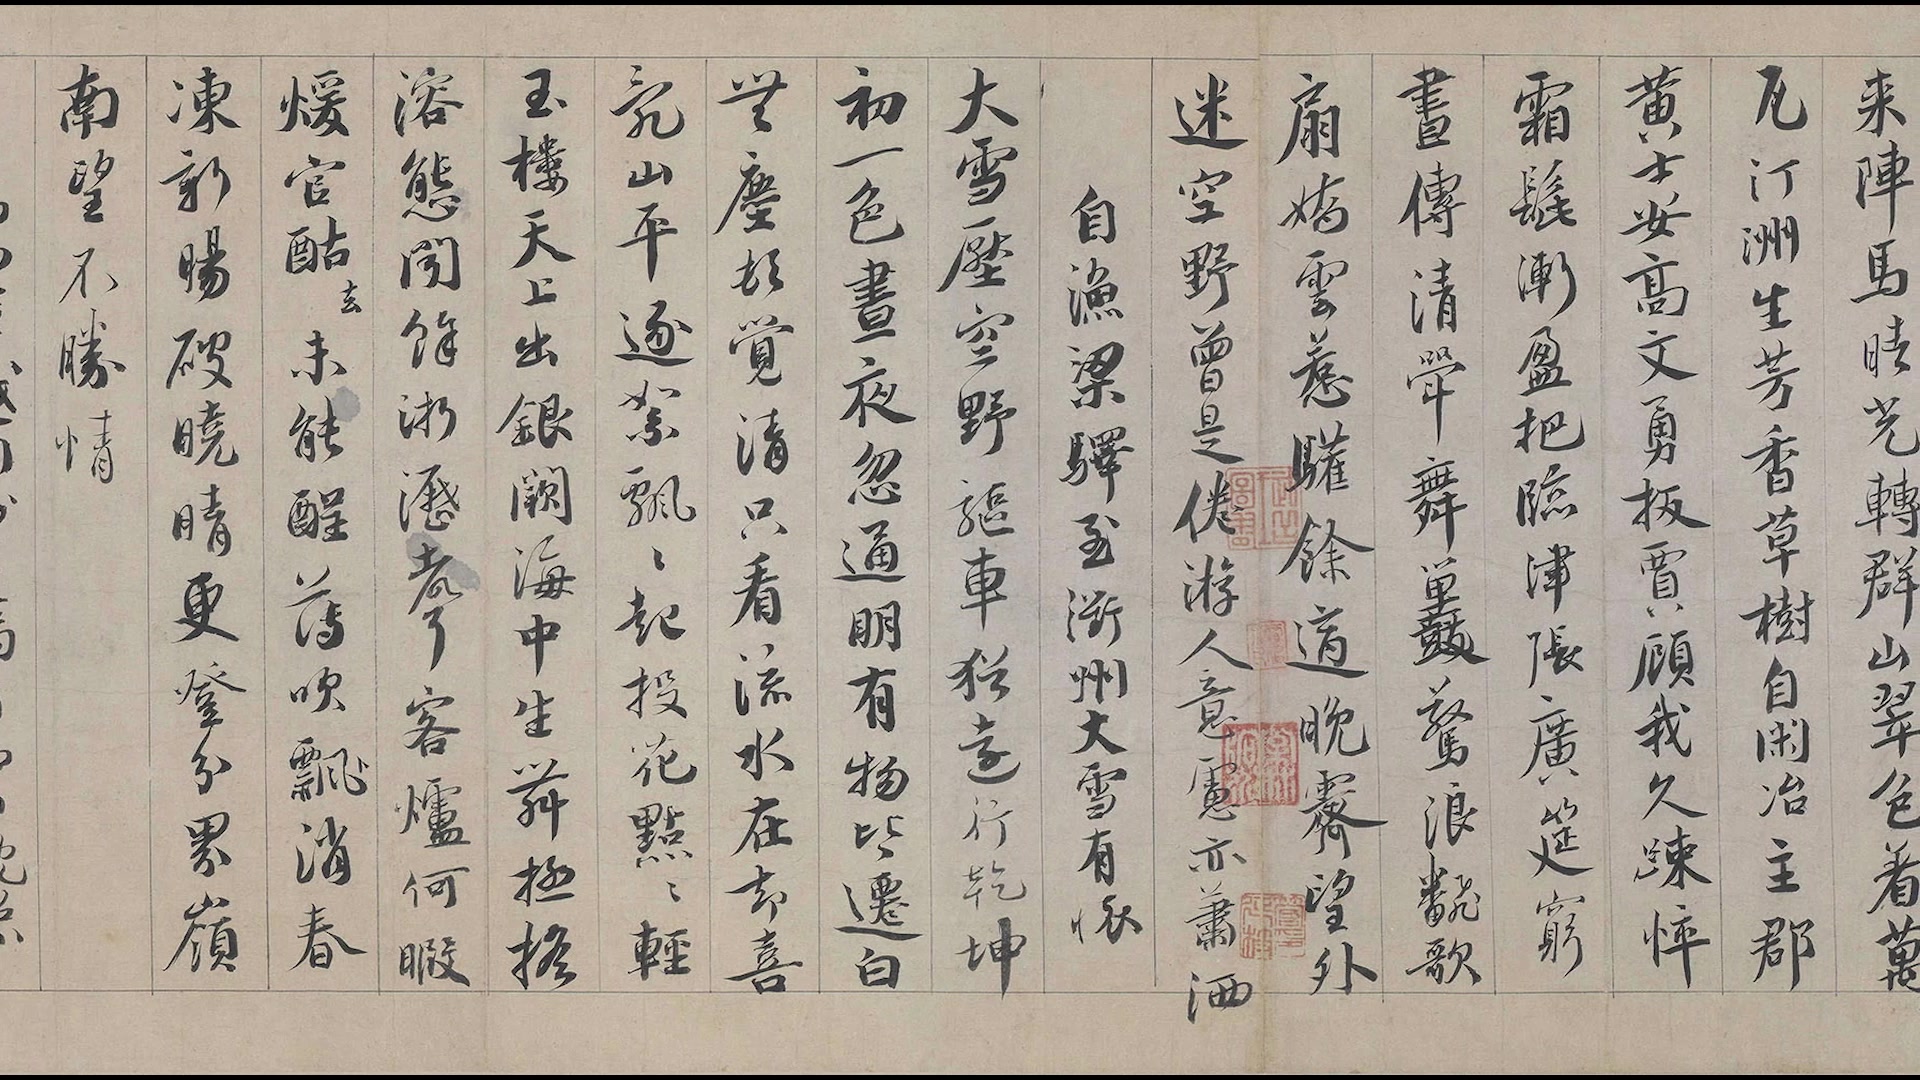 来陣馬晴光轉群山翠色着萬
瓦汀洲生芳香草樹自閑冶主郡
黄士安高文勇扳賈顧我久踈悴
霜髭漸盈把臨津張廣筵窮
晝傳清斝舞鼉鼓驚浪翻歌
扇嬌雲惹驩餘道晚霽望外
迷空野曾是倦游人意慮亦蕭洒
自漁梁驛至衢州大雪有懷
大雪壓空野驅車猶遠行乾坤
初一色晝夜忽通明有物皆遷白
無塵頓覺清只看流水在却喜
亂山平逐絮飄〻起投花點〻輕
玉樓天上出銀闕海中生舞極摇
溶態聞餘淅瀝聲客爐何暇
煖官酤去未能醒薄吹飄消春
凍新暘破曉晴更登分界嶺
南望不勝情